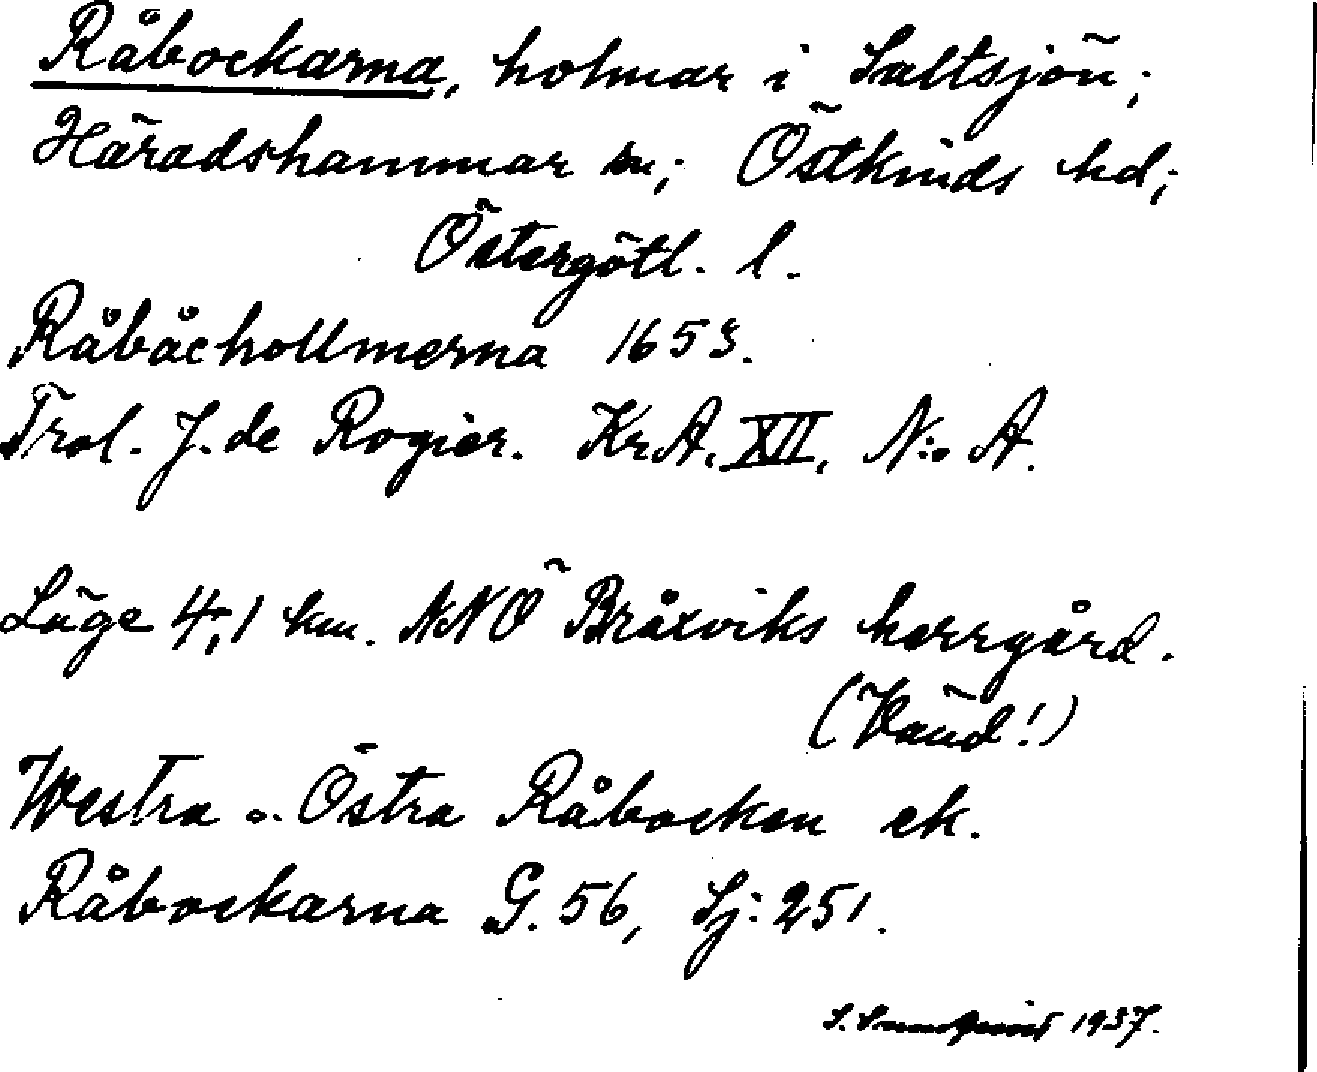 Råbockarna, holmar i Saltsjön;
Häradshammar sn; Östkinds hd;
Östergötl. l.
Råbåchollmerna 1653.
Trol. J. de Rogier. Kr.A. XII, N:o A.
Läge 4,1 km. NNÖ Bråxviks herrgård.
(Vänd!)
Westra o. Östra Råbocken ek.
Råbockarna G. 56, Sj: 251.
S. 1937.